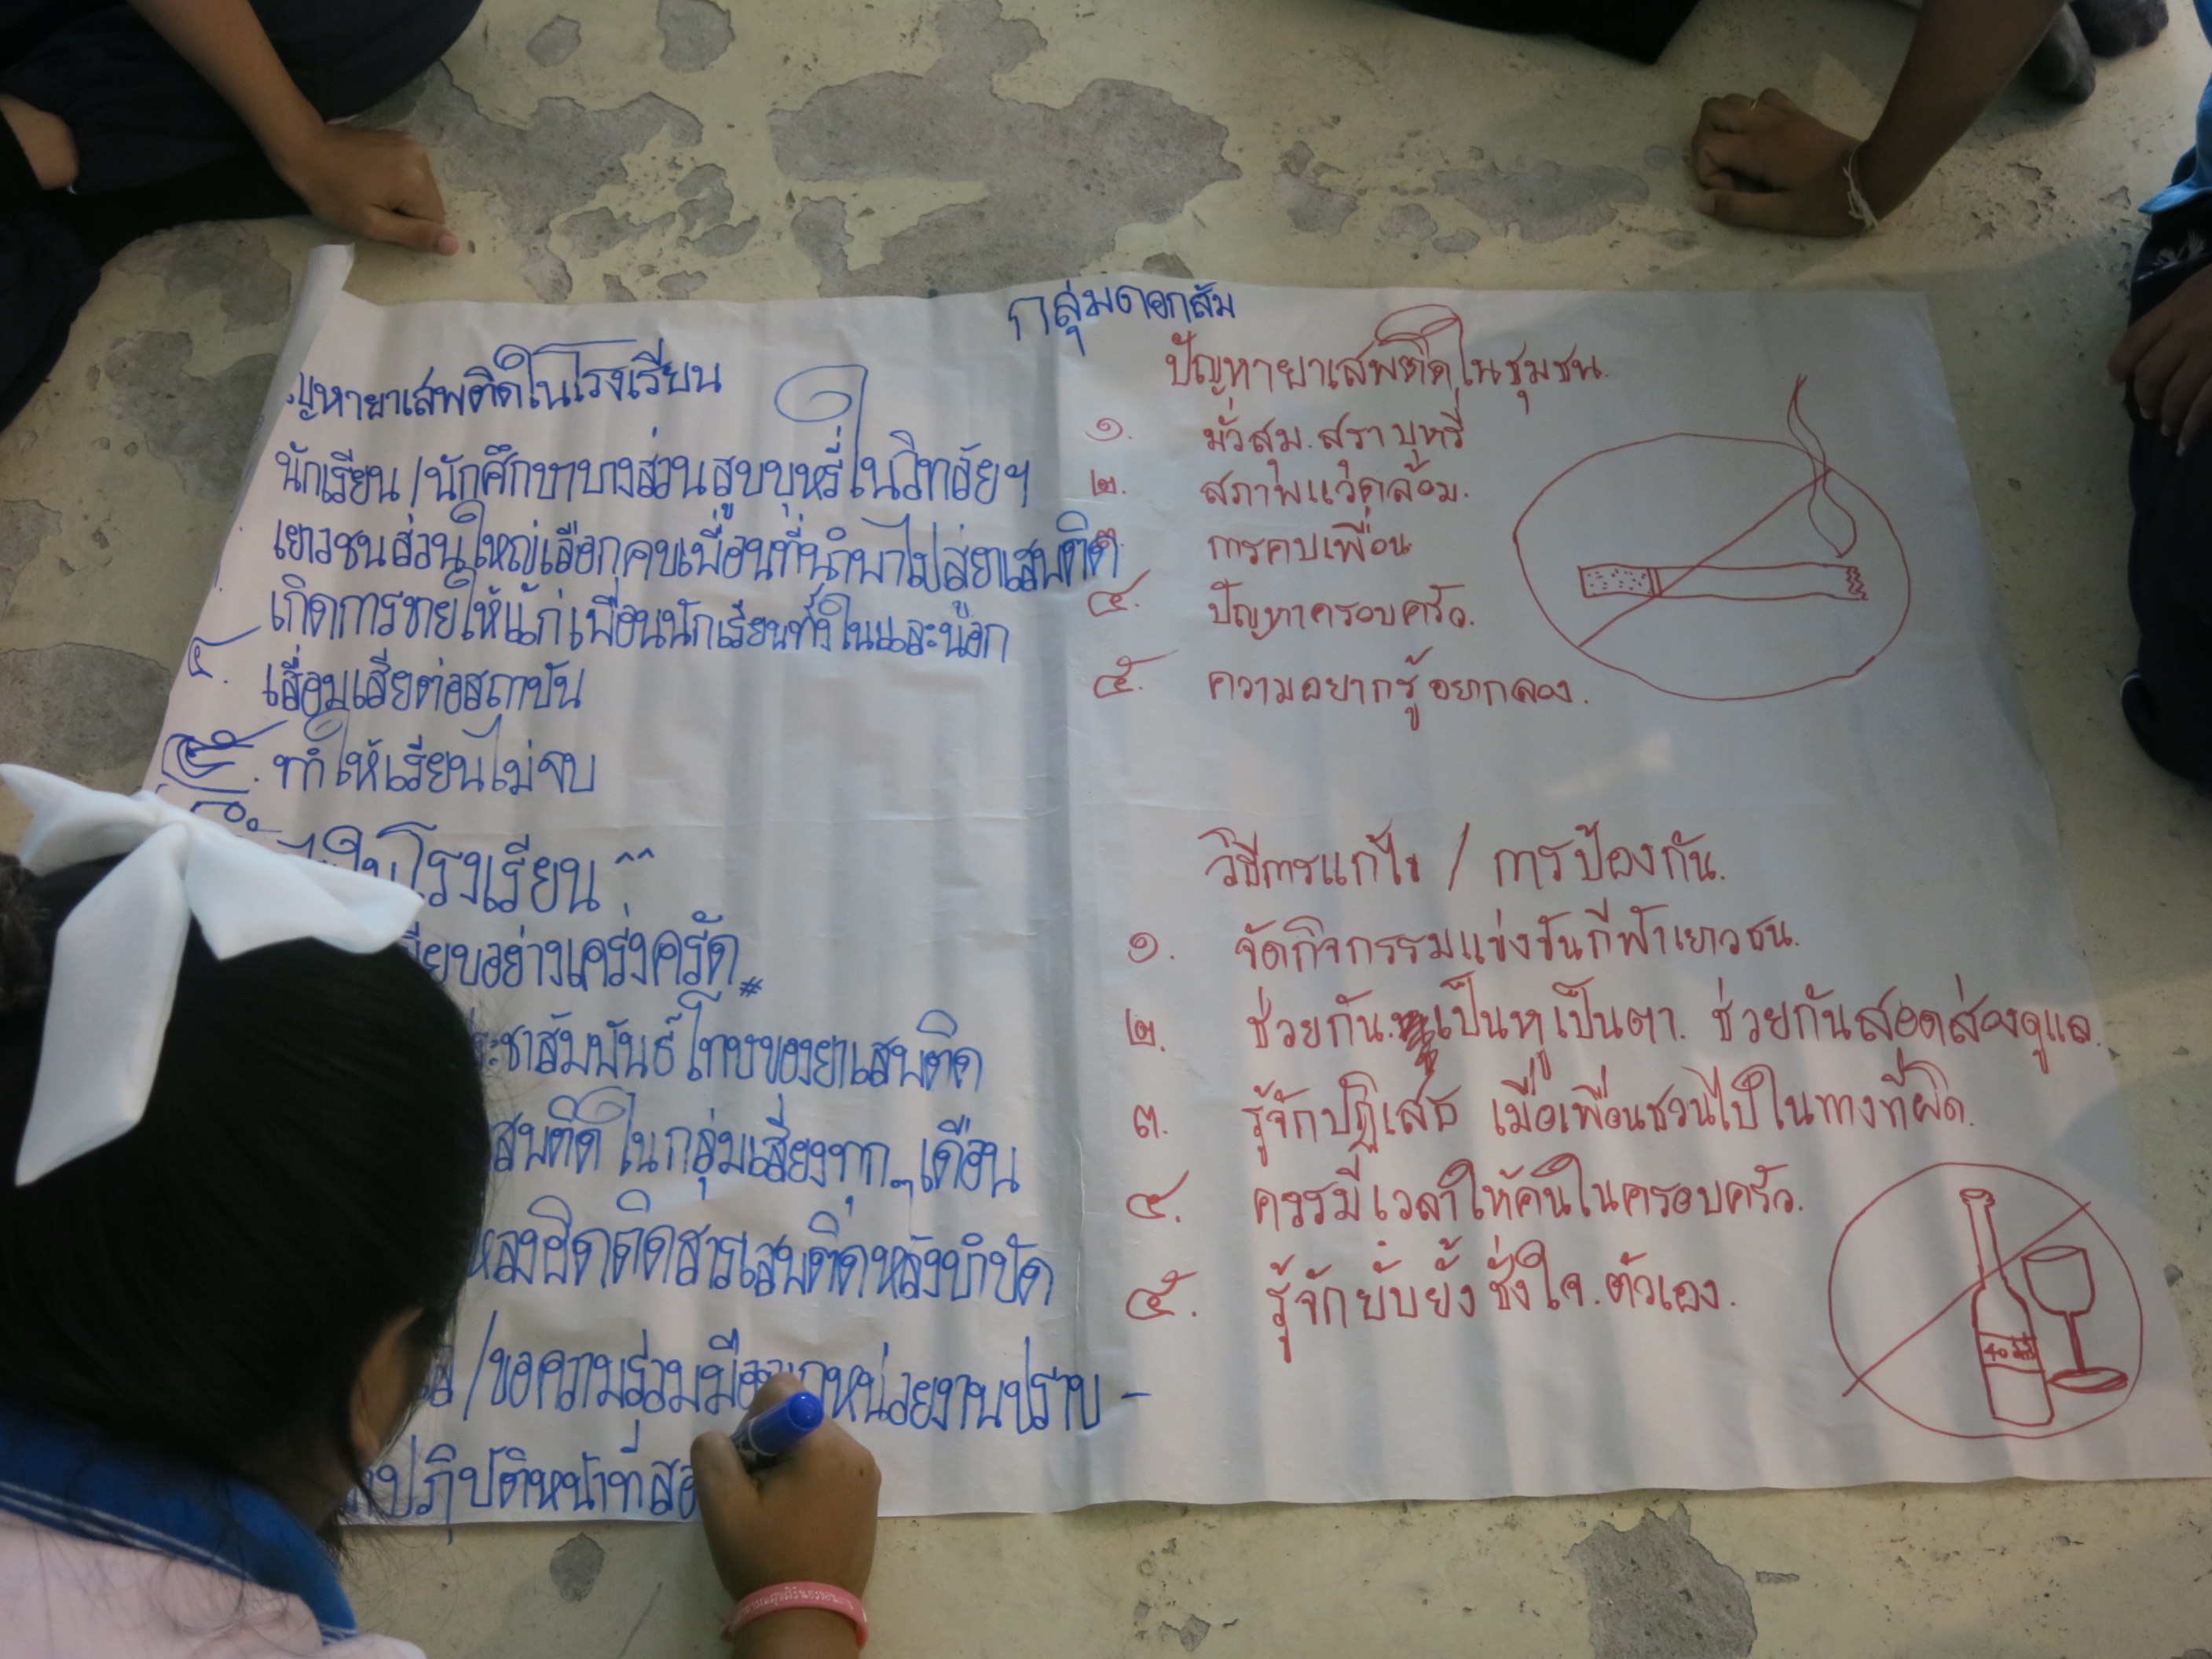 กลุ่มดอกส้ม
ญหายาเสพติดในโรงเรียน
นักเรียน / นักศึกษาบางส่วนสูบบุหรี่ในวิทลัยฯ
เยาวชนส่วนใหญ่เลือกคบเพื่อนที่นำพาไปสู่ยาเสพติด
เกิดการขายให้แก่เพื่อนนักเรียนทั้งในและนอก
๔. เสื่อมเสียต่อสถาบัน
๕. ทำให้เรียนไม่จบ
ในโรงเรียน ^^
อย่างเคร่งครัด #
ประชาสัมพันธ์โทษของยาเสพติด
เสพติดในกลุ่มเสี่ยงทุกๆ เดือน
หลงผิดติดสารเสพติดหลังบำบัด
/ ขอความร่วมมือจากหน่วยงานปราบ -
ปฏิบัติหน้าที่
ปัญหายาเสพติดในชุมชน.
๑. มั่วสุม. สุรา บุหรี่
๒. สภาพแวดล้อม.
๓. การคบเพื่อน
๔. ปัญหาครอบครัว.
๕. ความอยากรู้อยากลอง.
วิธีการแก้ไข / การป้องกัน.
๑. จัดกิจกรรมแข่งขันกีฬาเยาวชน.
๒. ช่วยกัน. เป็นหูเป็นตา. ช่วยกันสอดส่องดูแล.
๓. รู้จักปฏิเสธ เมื่อเพื่อนชวนไปในทางที่ผิด.
๔. ควรมีเวลาให้คนในครอบครัว.
๕. รู้จักยับยั้ง ชั่งใจ. ตัวเอง.
40